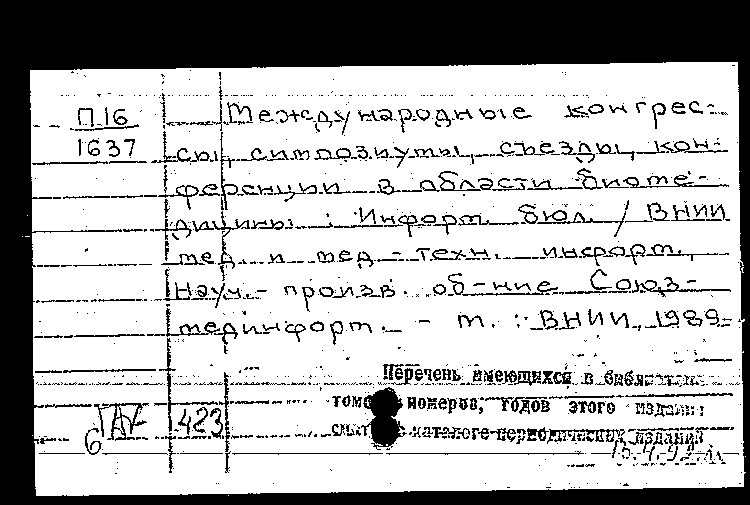 П16
1637
Международные конгрес-
сы, симпозиумы, съезды, кон-
ференции в области биоме-
дицины : Информ. бюл. / ВНИИ
мед. и мед.-техн. информ.,
Науч.-произв. об-ние Союз-
мединформ. - М. : ВНИИ, 1989-
Перечень имеющихся в библиотеке
томов, номеров, годов этого издания
смат в каталоге периодических изданий
6
423
15.4.92